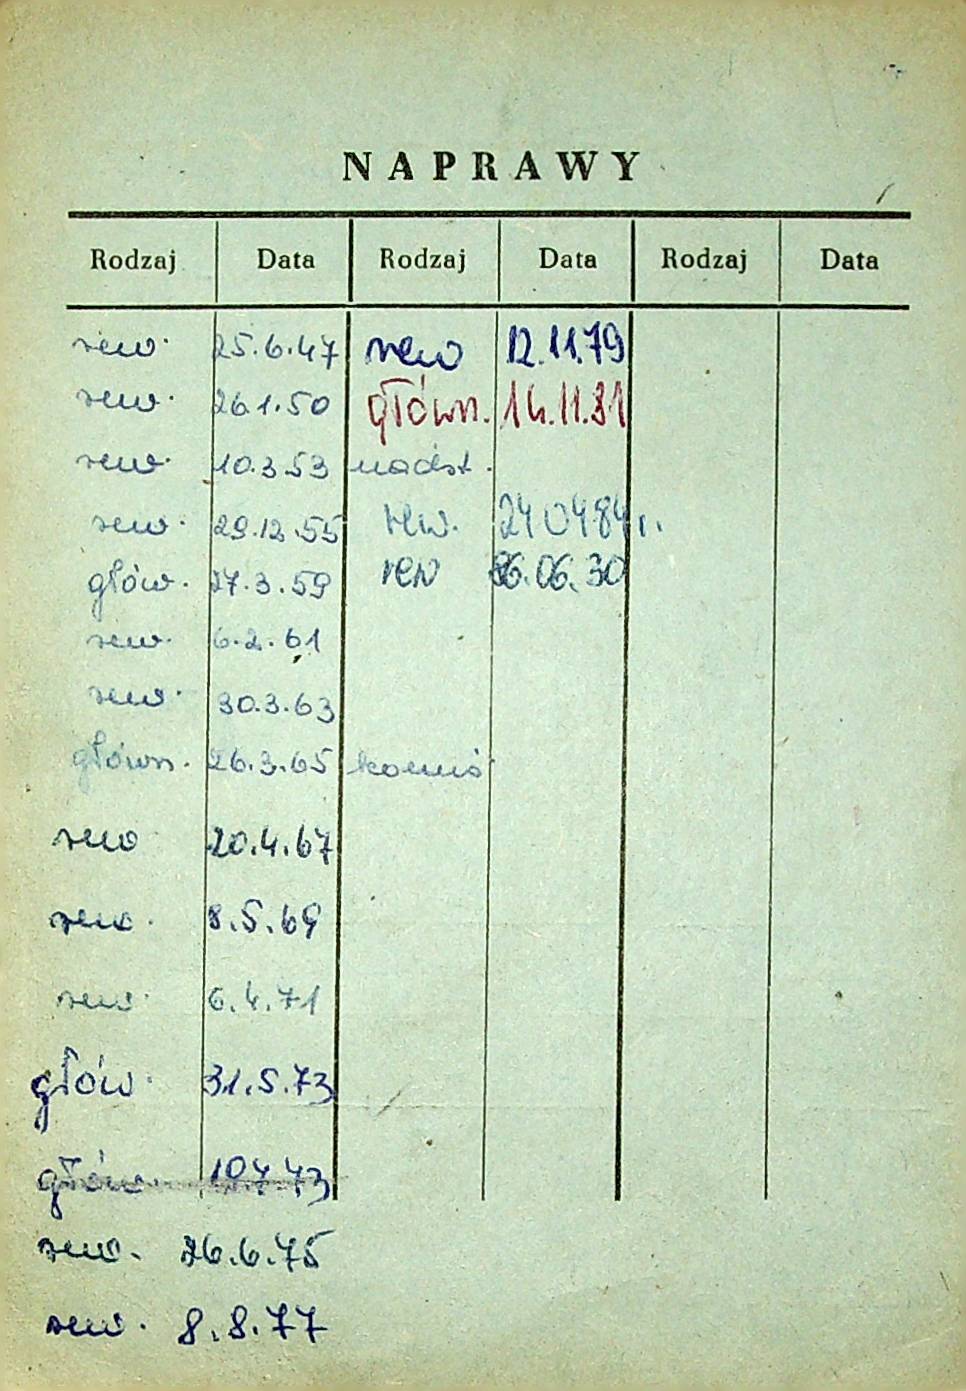 NAPRAWY
Rodzaj Data Rodzaj Data Rodzaj Data
rew. 25.6.47 rew 12.11.79
rew. 26.1.50 główn. 14.11.81
rew. 10.3.53 nadst.
rew. 29.12.55 rew. 240484r.
głów. 27.3.59 rew 86.06.30
rew. 6.2.61
rew. 30.3.63
główn. 26.3.65
rew 20.4.67
rew. 8.5.69
rew. 6.4.71
głów. 31.5.73
głów. 10.7.73
rew. 26.6.75
rew. 8.8.77